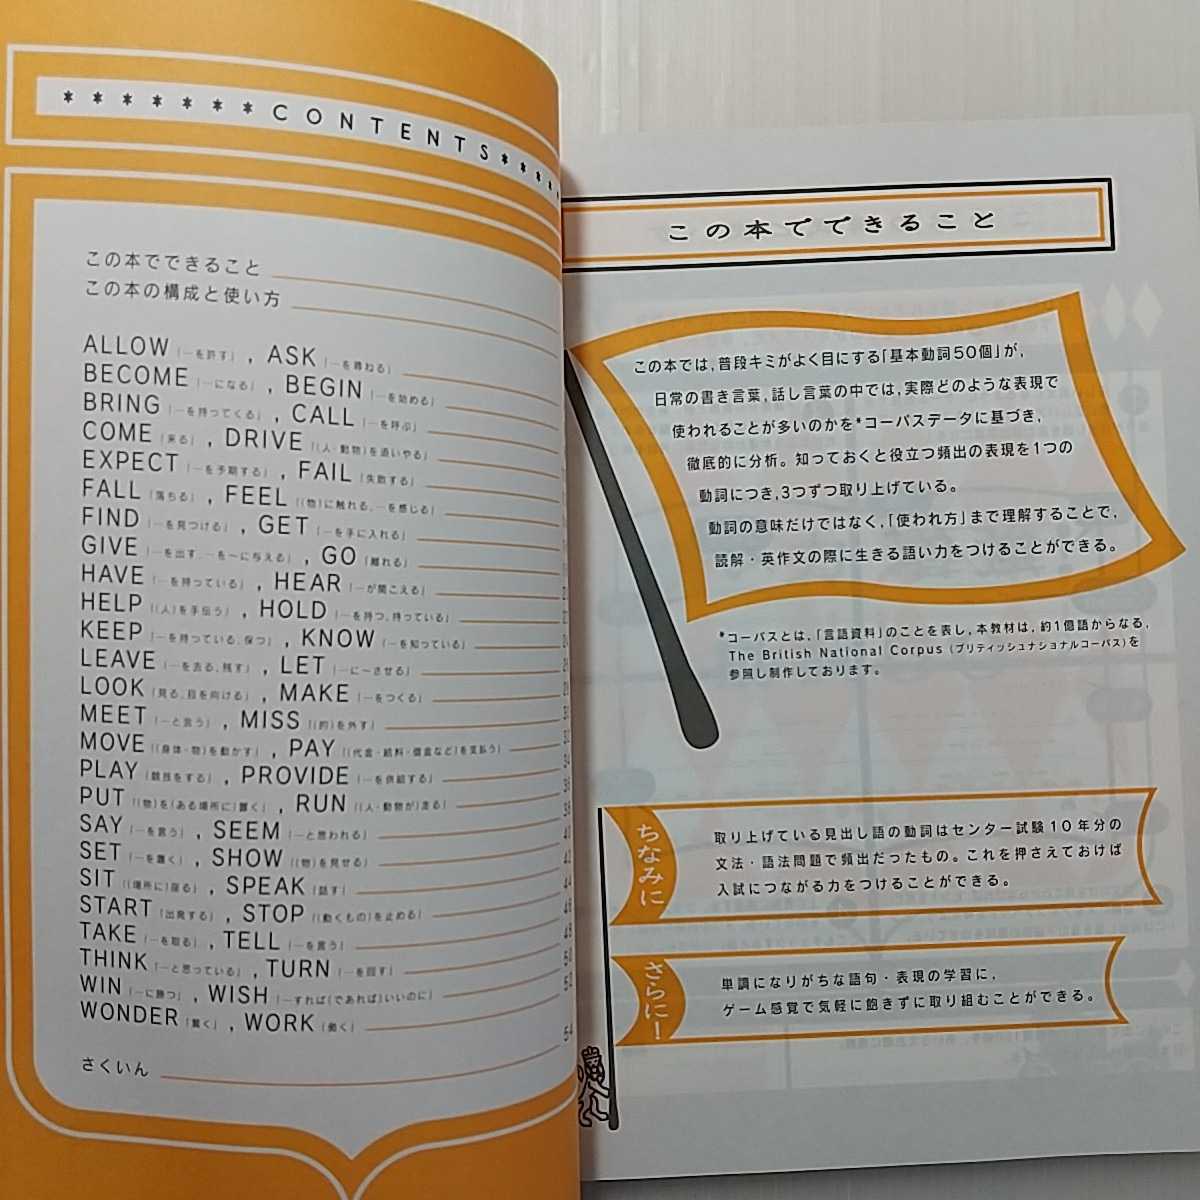 *******CONTENTS****
この本でできること
この本の構成と使い方
ALLOW「…を許す」, ASK「…を尋ねる」
BECOME「…になる」, BEGIN「…を始める」
BRING「…を持ってくる」, CALL「…を呼ぶ」
COME「来る」, DRIVE「(人・動物)を追いやる」
EXPECT「…を予期する」, FAIL「失敗する」
FALL「落ちる」, FEEL「(物)に触れる、…を感じる」
FIND「…を見つける」, GET「…を手に入れる」
GIVE「…を出す、…を〜に与える」, GO「離れる」
HAVE「…を持っている」, HEAR「…が聞こえる」
HELP「(人)を手伝う」, HOLD「…を持つ、持っている」
KEEP「…を持っている、保つ」, KNOW「…を知っている」
LEAVE「…を去る、残す」, LET「…に〜させる」
LOOK「見る、目を向ける」, MAKE「…をつくる」
MEET「…と会う」, MISS「(的)を外す」
MOVE「(身体・物)を動かす」, PAY「(代金・給料・借金など)を支払う」
PLAY「競技をする」, PROVIDE「…を供給する」
PUT「(物)を(ある場所に)置く」, RUN「(人・動物が)走る」
SAY「…を言う」, SEEM「…と思われる」
SET「…を置く」, SHOW「(物)を見せる」
SIT「(場所に)座る」, SPEAK「話す」 44
START「出発する」, STOP「(動くもの)を止める」 46
TAKE「…を取る」, TELL「…を言う」 48
THINK「…と思っている」, TURN「…を回す」 50
WIN「…に勝つ」, WISH「…すれば(であれば)いいのに」 52
WONDER「驚く」, WORK「働く」 54
さくいん
この本でできること
この本では,普段キミがよく目にする「基本動詞50個」が,
日常の書き言葉,話し言葉の中では,実際どのような表現で
使われることが多いのかを*コーパスデータに基づき,
徹底的に分析。知っておくと役立つ頻出の表現を1つの
動詞につき,3つずつ取り上げている。
動詞の意味だけではなく,「使われ方」まで理解することで,
読解・英作文の際に生きる語い力をつけることができる。
*コーパスとは,「言語資料」のことを表し,本教材は,約1億語からなる,
The British National Corpus (ブリティッシュナショナルコーパス)を
参照し制作しております。
ちなみに
取り上げている見出し語の動詞はセンター試験10年分の
文法・語法問題で頻出だったもの。これを押さえておけば
入試につながる力をつけることができる。
さらに!
単調になりがちな語句・表現の学習に,
ゲーム感覚で気軽に飽きずに取り組むことができる。